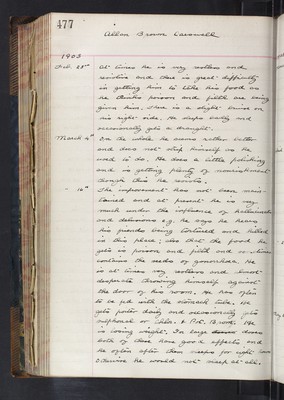 477
Allan Brown Carswell
1903
Feb. 23rd At times he is very restless and
resistive and there is great difficulty
in getting him to take his food as
he thinks poison and filth are being
given him. There is a slight bruise on
his right side. He sleeps badly and
occasionally gets a draught.
March 4th On the whole he is rather better
and does not strip himself as he
used to do. He does a little polishing
and is getting plenty of nourishment
though this he resists.
" 16th The improvement has not been main-
tained and at present he is very
much under the influence of hallucinations
and delusions e.g. he says he hears
his friends being tortured and killed
in this place; also that the food he
gets is poison and filth and sometimes
contains the seeds of gonorrhoea. He
is at times very restless and almost
desperate throwing himself against
the door of his room. He has often
to be fed with the stomach tube. He
gets porter daily and occasionally gets
sulphonal or Chlor. & Pot. Brom. He
is losing weight. In large doses
both of these have good effects and
he often after them sleeps for eight hours
otherwise he would not sleep at all.